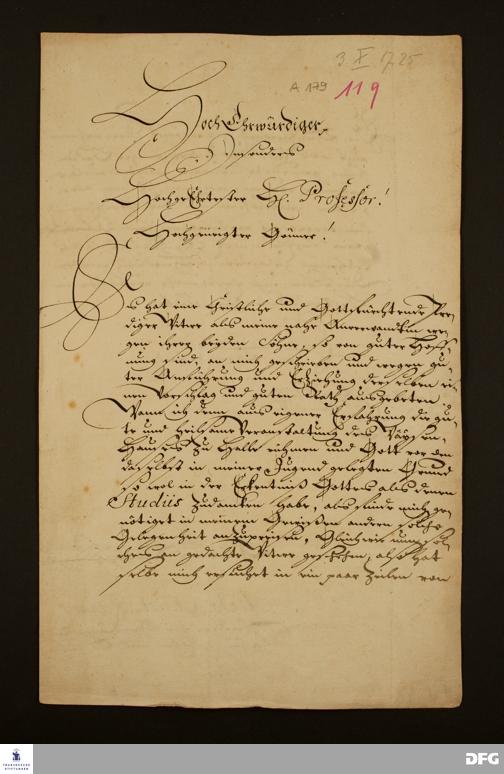 3. X 1725
A 179
119
HochEhrwürdiger,
Insonders
HochgeEhrtester H. Professor!
Hochgeneigter Gönner!
Es hat eine Christliche und Gottsfürchtende Pre-
diger Witwe als meine nahe Anverwantin we-
gen ihrer beyden Söhne, so von guter Hoff-
nung sind, an mich geschrieben und wegen gu-
ter Anführung und Erziehung derselben ei-
nen Vorschlag und guten Rath auszubeten.
Wann ich denn aus eigener Erfahrung die gu-
te und heilsame Veranstaltung des Wäysen-
Hauses zu Halle rühmen und Gott vor den
daselbst in meiner Jugend gelegten Grund
so wol in der Erkentniß Gottes als denen
Studiis zudancken habe, als finde mich ge-
nöthiget in meinem Gewißen andern solche
Gelegenheit anzupreisen, Gleichwie nun sol-
ches an gedachte Witwe geschehen, also hat
selbe mich ersuchet in ein paar Zeilen von
FRANCKESCHE
STIFTUNGEN
DFG